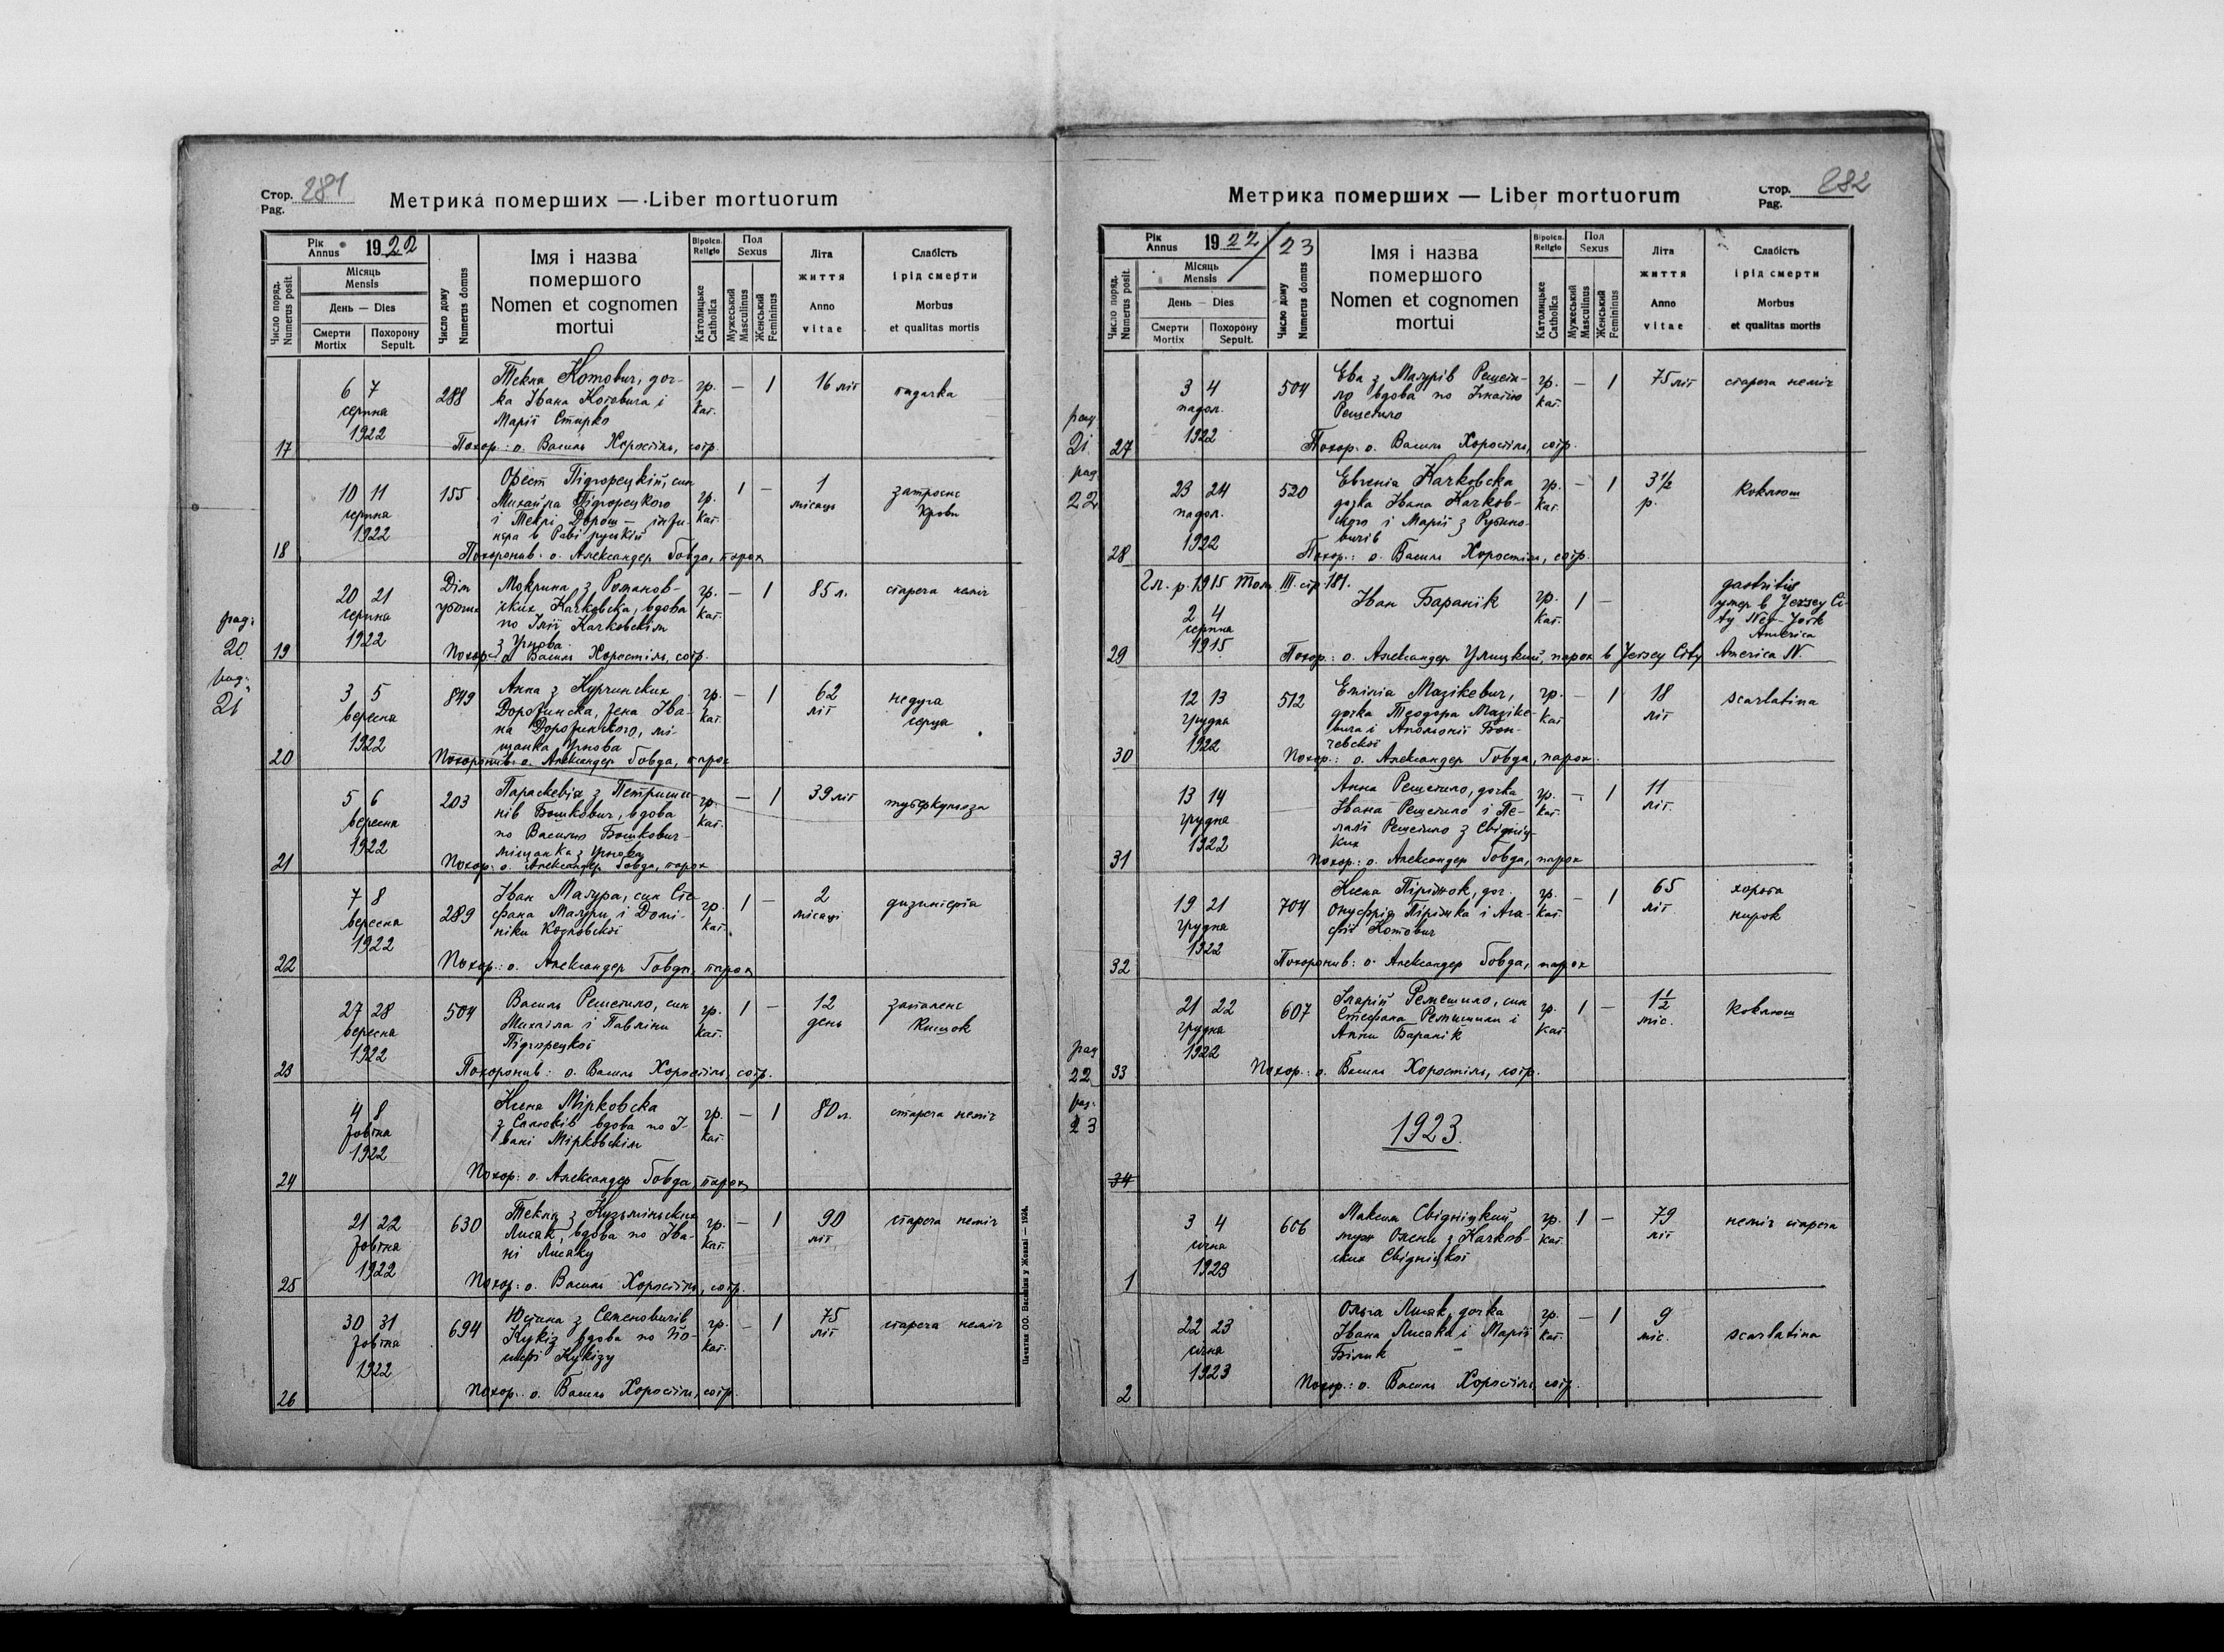 Стор. 281
Pag.
Метрика померших — Liber mortuorum
Рік 1922
Annus
Місяць
Mensis
День — Dies
Смерти Похорону
Mortix Sepult.
Число поряд.
Numerus posit.
Число дому
Numerus domus
Імя і назва
помершого
Nomen et cognomen
mortui
Віроісп.
Religio
Католицьке
Catholica
Пол
Sexus
Мужеський
Masculinus
Женський
Femininus
Літа
життя
Anno
vitae
Слабість
і рід смерти
Morbus
et qualitas mortis
17 6 7 серпня 1922 288
Текля Котович, доч-
ка Івана Котовича і
Марії Стирко
гр. кат. — 1 16 літ падачка
Похор.: о. Василь Хоростіль, сотр.
18 10 11 серпня 1922 155
Орест Підгорецкій, син
Михайла Підгорецкого
і Теклі Дорош — інжи-
нєра в Раві рускій
гр. кат. 1 — 1 місяць затроєнє крови
Похоронив. о. Александер Говда, парох
раg: 20
19 20 21 серпня 1922 Дім убогих
Мокрина з Романов-
ских Качковска, вдова
по Ілії Качковскім
з Угнова
гр. кат. — 1 85 л. стареча неміч
Похор. о Василь Хоростіль, сотр.
pag: 21
20 3 5 вересня 1922 849
Анна з Курчинских
Дорожинска, жена Іва-
на Дорожинского, мі-
щанка Угнова
гр. кат. — 1 62 літ недуга серця
Похоронив о. Александер Говда, парох
21 5 6 вересня 1922 203
Параскевія з Петриши-
нів Бошкович, вдова
по Василю Бошкович —
міщанка з Угнова
гр. кат. — 1 39 літ туберкульоза
Похор: о. Александер Говда, парох
22 7 8 вересня 1922 289
Іван Мазура, син Сте-
фана Мазури і Domi-
ніки Козловскої
гр. кат. 1 — 2 місяці дизинтерія
Похор.: о. Александер Говда, парох
23 27 28 вересня 1922 504
Василь Решетило, син
Михаіла і Павліни
Підгорецкої
гр. кат. 1 — 12 день запаленє кишок
Похоронив: о. Василь Хоростіль, сотр.
24 4 8 жовтня 1922
Ксеня Мірковска
вдова по І-
вані Мірковскім
гр. кат. — 1 80 л. стареча неміч
Похор: о. Александер Говда парох
25 21 22 жовтня 1922 630
Текля з Кузьміньских
Лисяк, вдова по Іва-
ні Лисяку
гр. кат. — 1 90 літ стареча неміч
Похор: о. Василь Хоростіль, сотр.
26 30 31 жовтня 1922 694
Юстина з Семеновичів
Кукіз вдова по Йо-
сифі Кукізу
гр. кат. — 1 75 літ стареча неміч
Похор.. о. Василь Хоростіль, сотр.
Печатня ОО. Василіян у Жовкві — 1924.
Стор. 282
Pag.
Метрика померших — Liber mortuorum
Рік 1922/23
Annus
Місяць
Mensis
День — Dies
Смерти Похорону
Mortix Sepult.
Число поряд.
Numerus posit.
Число дому
Numerus domus
Імя і назва
помершого
Nomen et cognomen
mortui
Віроісп.
Religio
Католицьке
Catholica
Пол
Sexus
Мужеський
Masculinus
Женський
Femininus
Літа
життя
Anno
vitae
Слабість
і рід смерти
Morbus
et qualitas mortis
pag 21
27 3 4 падол. 1922 504
Ева з Мазурів Решети-
ло вдова по Ігнатію
Решетило
гр. кат. — 1 75 літ стареча неміч
Похор. о. Василь Хоростіль, сотр.
pag 22
28 23 24 падол. 1922 520
Евгенія Качковска
дочка Івана Качков-
ского і Марії з
гр. кат. — 1 3 1/2 р. коклюш
Похор.: о. Василь Хоростіль, сотр.
Гл. р. 1915 Том III. стр 181.
29 2 4 серпня 1915
Іван Баранік
гр. кат. 1 —
gastritis
умер в Jersey Ci-
ty New-Jork
America
Похор.: о. Александер Улицкий, парох в Jersey City America N.
30 12 13 грудня 1922 512
Емілія Мазікевич,
дочка Теодора Мазіке-
вича і Аполонії Бон-
чевскої
гр. кат — 1 18 літ scarlatina
Похор.: о. Александер Говда, парох.
31 13 14 грудня 1922
Анна Решетило, дочка
Івана Решетило і Пе-
лагії Решетило з Свідніц-
ких
гр. кат. — 1 11 літ.
Похор.: о. Александер Говда, парох
32 19 21 грудня 1922 704
Ксеня Піріжок, доч.
Онуфрія Піріжка і Ага-
фії Котович
гр. кат. — 1 65 літ хороба нирок
Похоронив: о. Александер Говда, парох
pag 22
33 21 22 грудня 1922 607
Іларій Ремешило, син
Стефана Ремешили і
Анни Баранік
гр. кат 1 — 1 1/2 міс. коклюш
Похор.: о. Василь Хоростіль, сотр.
pag: 23
34
1923.
1 3 4 січня 1923 606
Максим Свідніцкий,
муж Олени з Качков-
ских Свідніцкої
гр. кат. 1 — 79 літ неміч стареча
2 22 23 січня 1923
Ольга Лисяк, дочка
Івана Лисяка і Марії
Білик
гр. кат. — 1 9 міс. scarlatina
Похор.: о. Василь Хоростіль, сотр.